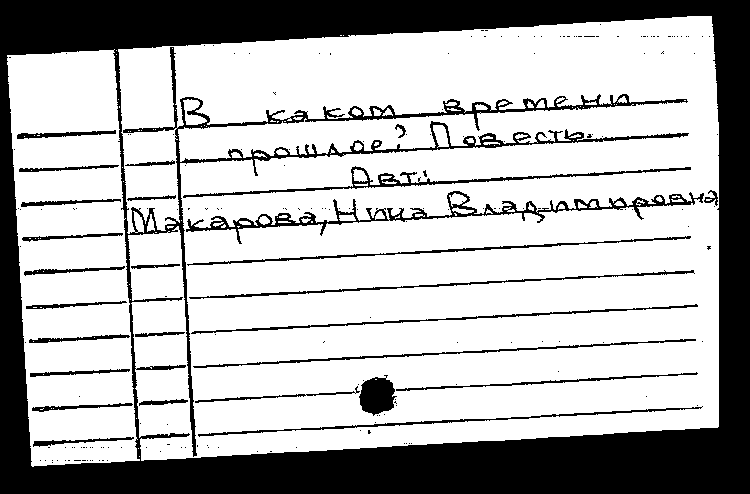 В каком времени
прошлое? Повесть.
Авт.:
Макарова, Нина Владимировна